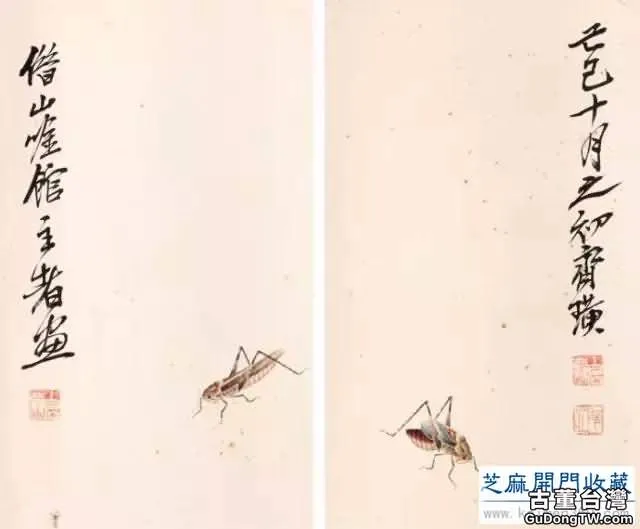 巳十月之初齊璜
借山唫館主者畫
芝麻開門收藏
古董台灣
GuDongTW.com